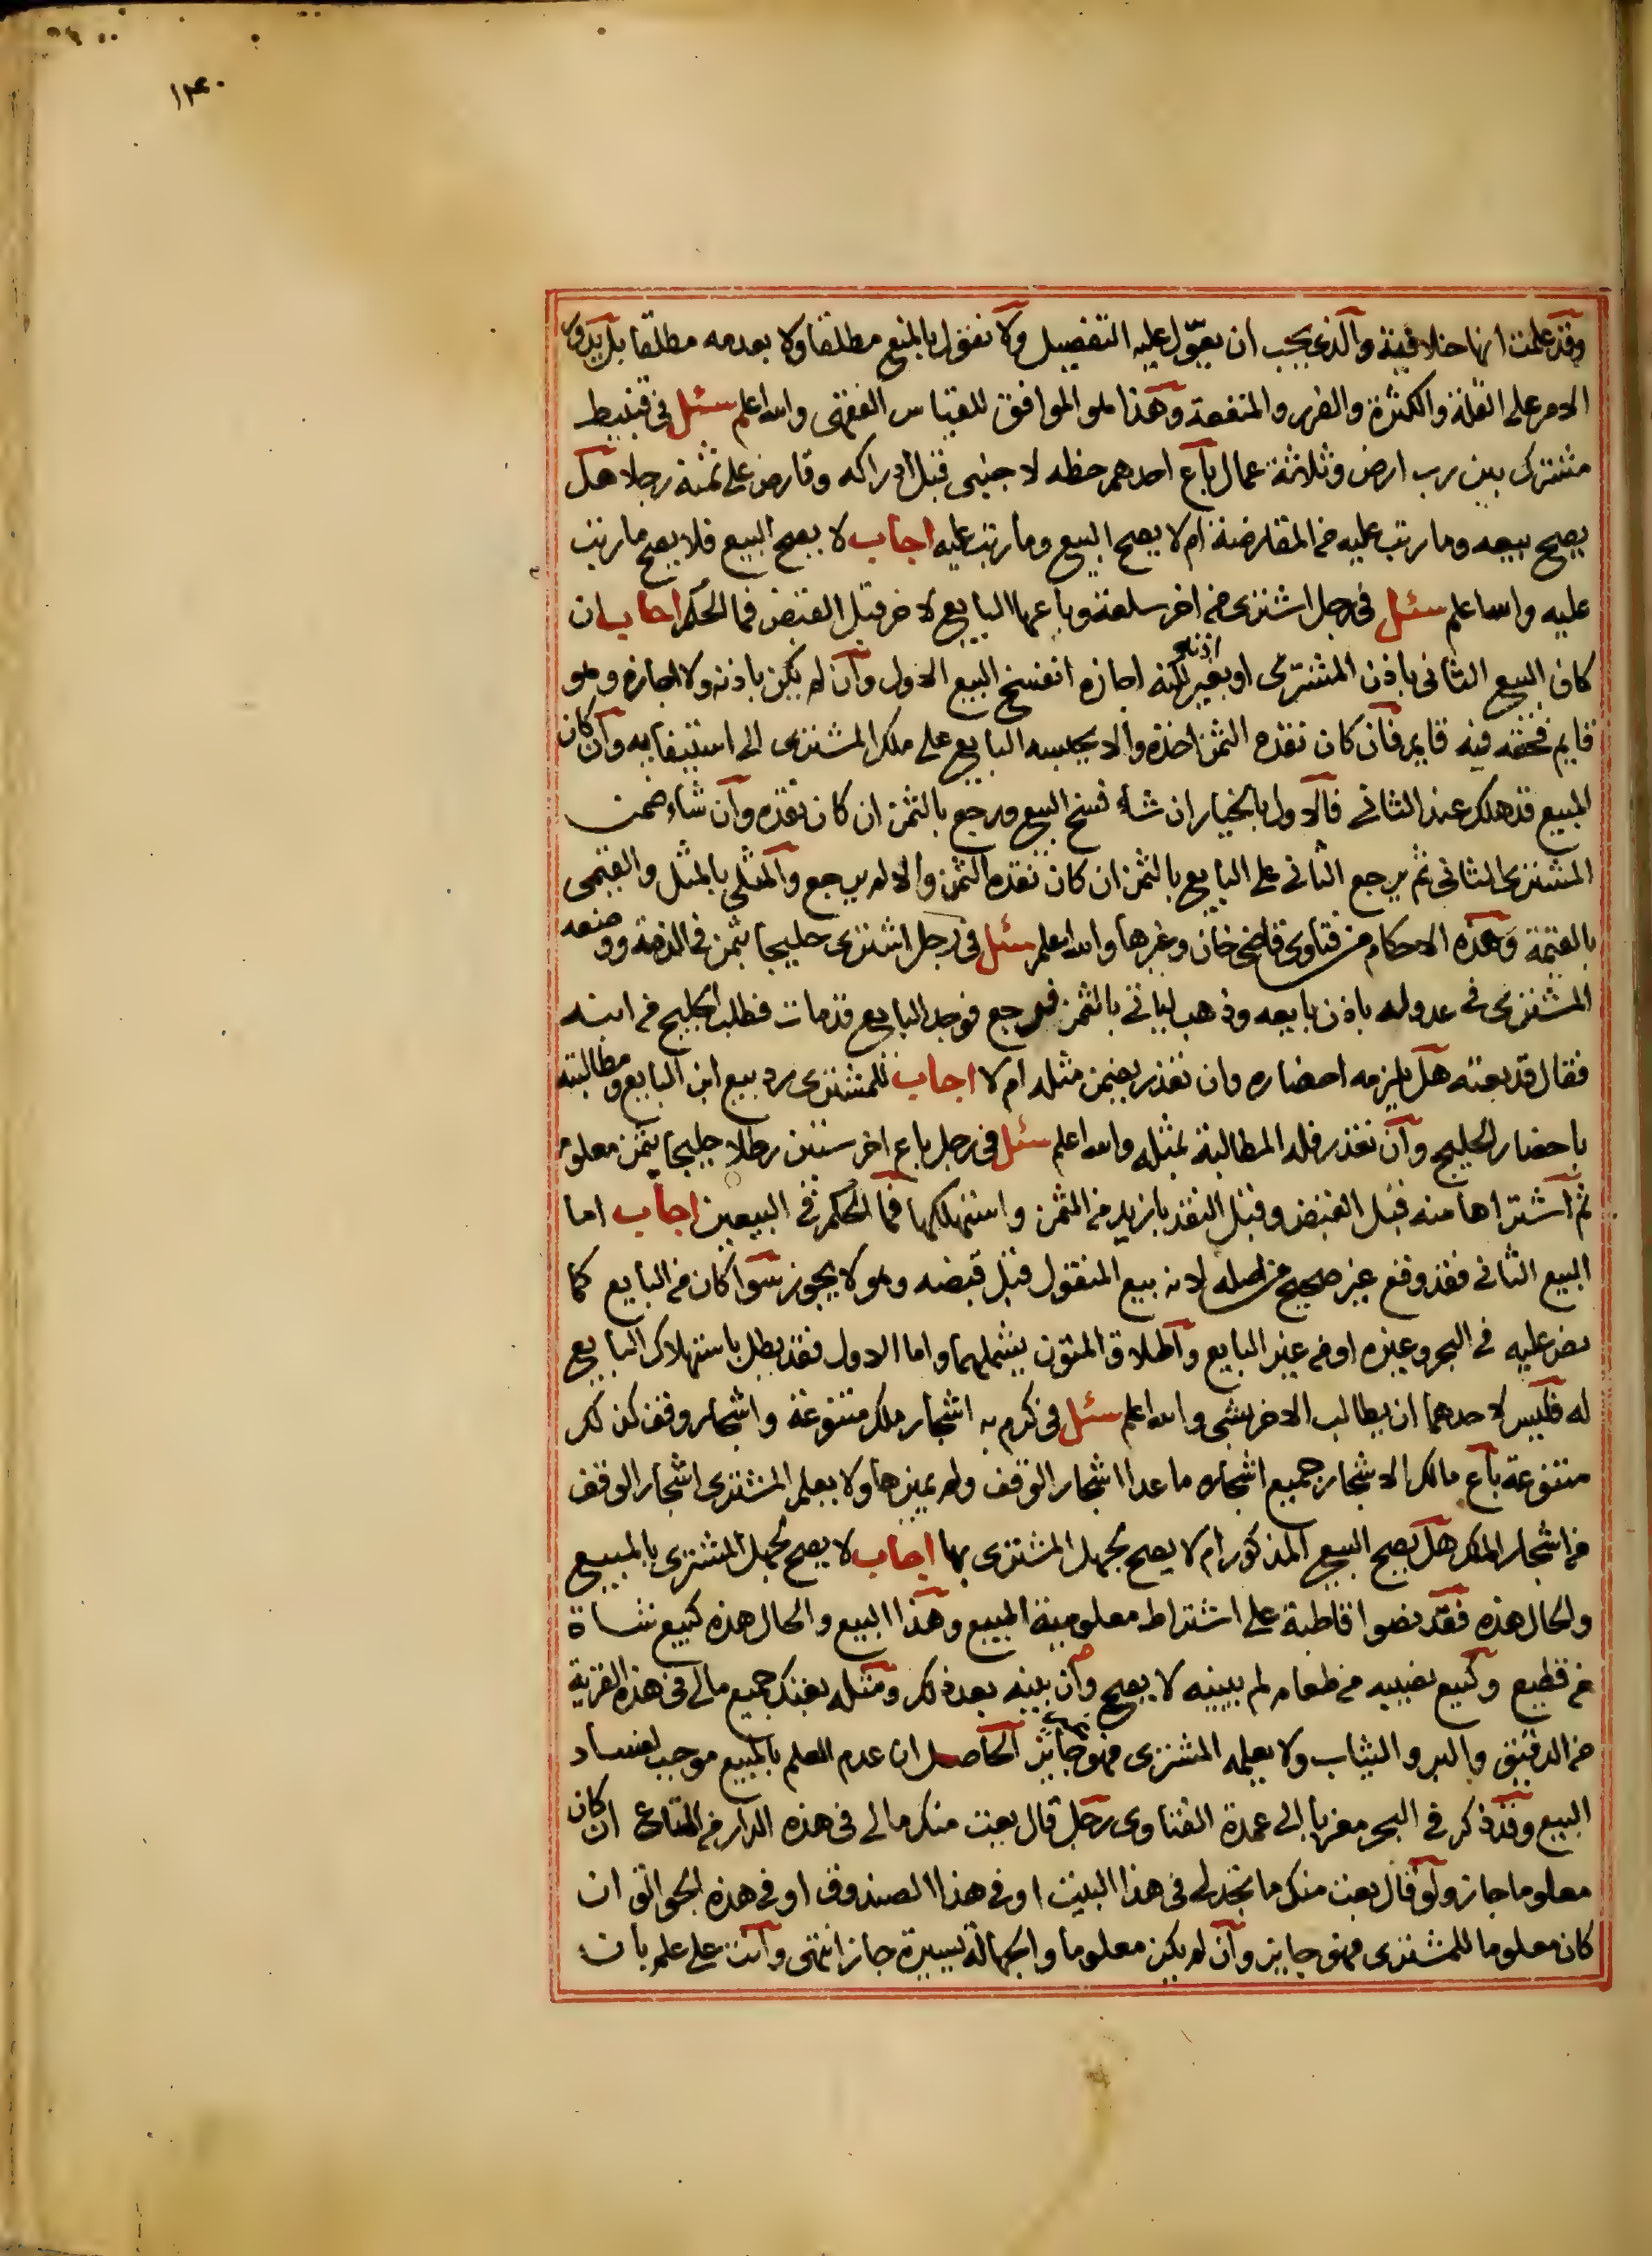 ١٣٤٠
وقد علمت انها خلافية والذي يجب ان يعول عليه التفصيل ولا نقول بالمنع مطلقا ولا بعدمه مطلقا بل يدور
الامر على القلة والكثرة والضرر والمنفعة وهذا هو الموافق للقياس الفقهى والله اعلم سئل فى قنبيط
مشترك بين رب ارض وثلاثة عمال باع احدهم حظه لاجنبى قبل ادراكه وقارض على ثمنه رجلا هل
يصح بيعه وما رتب عليه من المقارضة ام لا يصح البيع وما رتب عليه اجاب لا يصح البيع فلا يصح ما رتب
عليه والله اعلم سئل فى رجل اشترى من اخر سلعة وباعها البايع لاخر قبل القبض فما الحكم اجاب ان
كان البيع الثانى باذن المشترى او بغير اذنه لكنه اجازه انفسخ البيع الاول وان لم يكن باذنه ولا اجازه وهو
قايم فحقه فيه قايم فان كان نقده الثمن اخذه والا يحبسه البايع على ملك المشترى الى استيفايه وان كان
المبيع قد هلك عند الثانى فالاول بالخيار ان شاء فسخ البيع ورجع بالثمن ان كان نقده وان شاء ضمن
المشترى الثانى ثم يرجع الثانى على البايع بالثمن ان كان نقده الثمن والا لم يرجع والمثلى بالمثل والقيمى
بالقيمة وهذه الاحكام من فتاوى قاضى خان وغيرها والله اعلم سئل فى رجل اشترى حليجا بثمن فى الذمة ووضعه
المشترى فى عدوله باذن بايعه وذهب لياتى بالثمن فرجع فوجد البايع قد مات فطلب الحليج من ابنه
فقال قد بعته هل يلزمه احضاره وان تعذر يضمن مثله ام لا اجاب للمشترى رد بيع ابن البايع ومطالبته
باحضار الحليج وان تعذر فله المطالبة بمثله والله اعلم سئل فى رجل باع اخر ستين رطلا حليجا بثمن معلوم
ثم اشتراها منه قبل القبض وقبل النقد بازيد من الثمن واستهلكها فما الحكم فى البيعين اجاب اما
البيع الثانى فقد وقع غير صحيح من اصله لانه بيع المنقول قبل قبضه وهو لا يجوز سوا كان من البايع كما
نص عليه فى البحر وغيره او من غير البايع واطلاق المتون يشملهما واما الاول فقد بطل باستهلاك البايع
له فليس لاحدهما ان يطالب الاخر بشى والله اعلم سئل فى كرم به اشجار ملك متنوعة واشجار وقف كذلك
متنوعة باع مالك الاشجار جميع اشجاره ما عدا اشجار الوقف ولم يميزها ولا يعلم المشترى اشجار الوقف
من اشجار الملك هل يصح البيع المذكور ام لا يصح لجهل المشترى بها اجاب لا يصح لجهل المشترى بالمبيع
والحال هذه فقد نصوا قاطبة على اشتراط معلومية المبيع وهذا البيع والحال هذه كبيع شاة
من قطيع وكبيع نصيبه من طعام لم يبينه لا يصح وان بينه بعد ذلك ومثله بعتك جميع مالى فى هذه القرية
من الدقيق والبر والثياب ولا يعلمه المشترى فهو جايز الحاصل ان عدم العلم بالمبيع موجب لفساد
البيع وقد ذكر فى البحر معزيا الى عمدة الفتاوى رجل قال بعت منك مالى فى هذه الدار من المتاع ان كان
معلوما جاز ولو قال بعت منك ما تجد لى فى هذا البيت او فى هذا الصندوق او فى هذه الجوالق ان
كان معلوما للمشترى فهو جايز وان لم يكن معلوما والجهالة يسيرة جاز انتهى وانت على علم بان